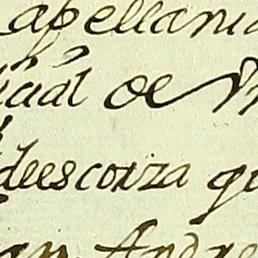 apellania
icial de
deescorza qu
an Andre